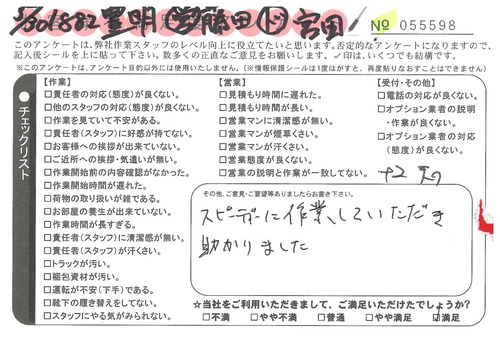 1/301882 豊明 営 藤田 ト 宮田
No 055598
このアンケートは、弊社作業スタッフのレベル向上に役立てたいと思います。否定的なアンケートになりますので、
記入後シールを上に貼って下さい。数多くの正直なご意見をお願いします。✓印は、いくつでも結構です。
※このアンケートは、アンケート目的以外には使用いたしません。(※情報保護シールは1度はがすと、再度貼りなおすことはできません)
チェックリスト
【作業】
□責任者の対応(態度)が良くない。
□他のスタッフの対応(態度)が良くない。
□作業を見ていて不安がある。
□責任者(スタッフ)に好感が持てない。
□お客様への挨拶が出来ていない。
□ご近所への挨拶・気遣いが無い。
□作業開始前の内容確認がなかった。
□作業開始時間が遅れた。
□荷物の取り扱いが雑である。
□お部屋の養生が出来ていない。
□作業時間が長すぎる。
□責任者(スタッフ)に清潔感が無い。
□責任者(スタッフ)が汗くさい。
□トラックが汚い。
□梱包資材が汚い。
□運転が不安(下手)である。
□靴下の履き替えをしてない。
□スタッフにやる気がみられない。
【営業】
□見積もり時間に遅れた。
□見積もり時間が長い。
□営業マンに清潔感が無い。
□営業マンが煙草くさい。
□営業マンが汗くさい。
□営業態度が良くない。
□営業の説明と作業が一致してない。
【受付・その他】
□電話の対応が良くない。
□オプション業者の説明
・作業が良くない。
□オプション業者の対応
(態度)が良くない。
その他、ご意見・ご要望等ありましたらお書き下さい。
スピーディーに作業していただき
助かりました
☆当社をご利用いただきまして、ご満足いただけたでしょうか?
□不満 □やや不満 □普通 □やや満足 □満足